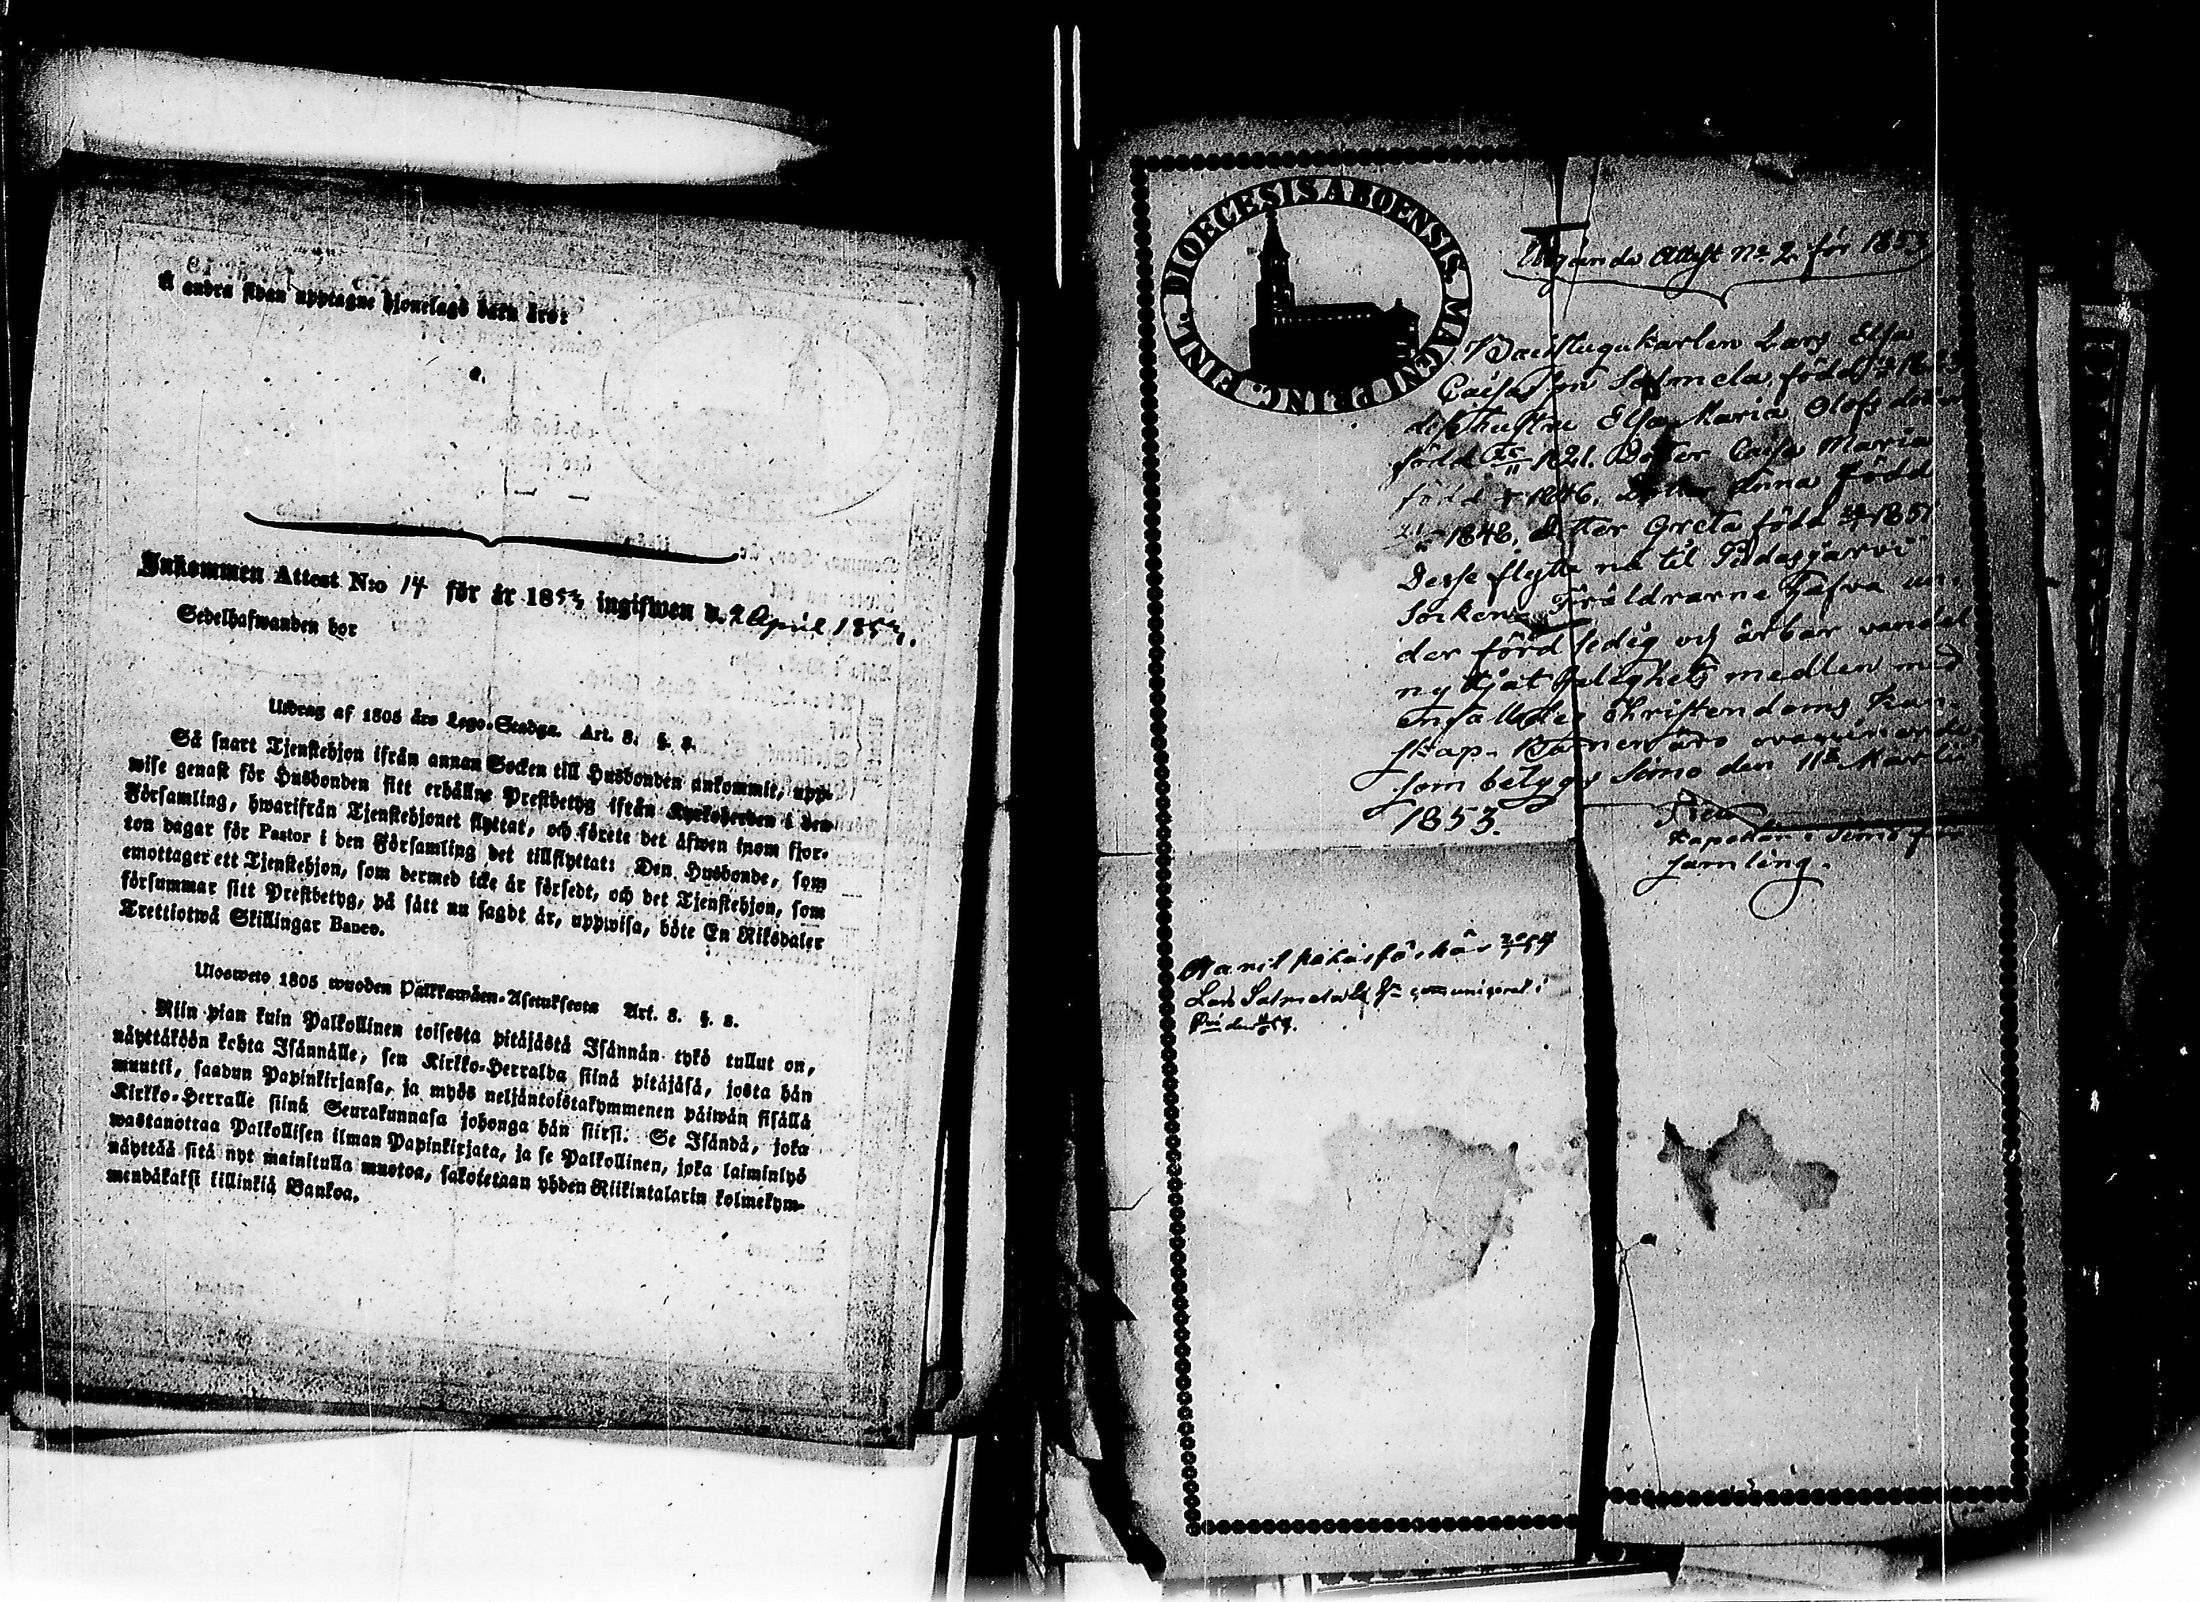 å andra sidan upptagne hjonelags barn äro:
Inkommen Attest N:o 14 för år 1853 ingifwen d. 2 April 1853.
Sedelhafwanden bor
Utdrag af 1805 års Lego-Stadga. Art. 8. §. 8.
Så snart Tjenstehjon ifrån annan Socken till Husbonden ankommit, upp-
wise genast för Husbonden sitt erhållne Prestbetyg ifrån Kyrkoherden i den
Församling, hwarifrån Tjenstehjonet flyttat, och förete det äfwen inom fjor-
ton dagar för Pastor i den Församling det tillflyttat: Den Husbonde, som
emottager ett Tjenstehjon, som dermed icke är försedt, och det Tjenstehjon, som
försummar sitt Prestbetyg, på sätt nu sagdt är, uppwisa, böte En Riksdaler
Trettiotwå Skillingar Banco.
Ulosweto 1805 wuoden Palkkawäen-Asetuksesta Art. 8. §. 8.
Niin pian kuin Palkollinen toisesta pitäjästä Isännän tykö tullut on,
näyttäköön kohta Isännälle, sen Kirkko-Herralda siinä pitäjäsä, josta hän
muutti, saadun Papinkirjansa, ja myös neljäntoistakymmenen päiwän sisällä
Kirkko-Herralle siinä Seurakunnasa johonga hän siirsi. Se Isändä, joka
wastanottaa Palkollisen ilman Papinkirjata, ja se Palkollinen, joka laiminlyö
näyttää sitä nyt mainitulla muotoa, sakotetaan yhden Riikintalarin kolmekym-
mendäkaksi killinkiä Bankoa.
DIOECESIS ABOENSIS. MAGNI PRINC. FINL.
Utgånde Attest No 2 för 1853
Backstugukarlen Lars Elja
Caisasson Salmela, född
dess hustru Elsa Maria Olofsdotter
född 25/11 1821. Dotter Caisa Maria
född 1846. Dotter Anna född
1848. Dotter Greta född 1851
Desse flytta nu til Pudasjärvi
Socken. Föräldrarne Hafva un-
der förd ledig och ärbar vandel
nytjat Salighets medlen med
enfalldig Christendoms Kun-
skap. Barnen äro ovaccinerade,
som betygas Simo den 11te Martii
1853.
Kapellan i Simo för-
samling.
Lars Salmela communiceral i